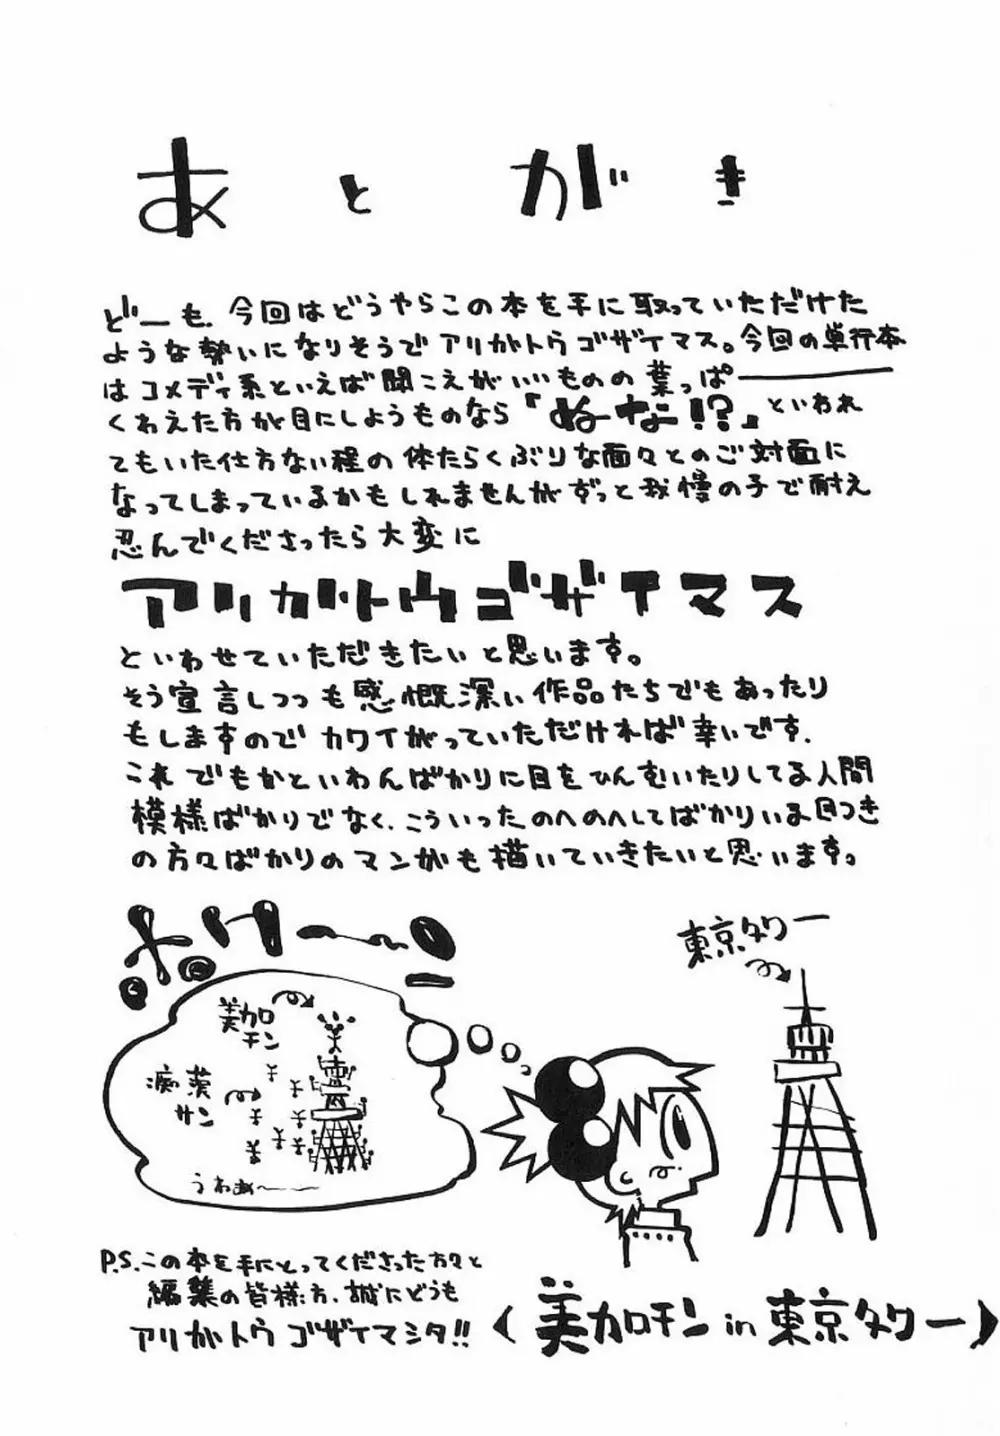 あとがき
どーも、今回はどうやらこの本を手に取っていただけた
ような勢いになりそうでアリガトウゴザイマス。今回の単行本
はコメディ系といえば聞こえがいいものの葉っぱ
くわえた方が目にしようものなら『ぬーな!?』といわれ
てもいた仕方ない程の体たらくぶりな面々とのご対面に
なってしまっているかもしれませんがずっと我慢の子で耐え
忍んでくださったら大変に
アリガトウゴザイマス
といわせていただきたいと思います。
そう宣言しつつも感慨深い作品たちでもあったり
もしますのでカワイがっていただければ幸いです.
これでもかといわんばかりに目をひんむいたりしてる人間
模様ばかりでなく、こういったのへのへしてばかりいる目つき
の方々ばかりのマンガも描いていきたいと思います。
東京タワー
美カロ
チン
痴漢
サン
うわぁ〜
P.S.この本を手にとってくださった方々と
編集の皆様方、誠にどうも
アリガトウゴザイマシタ!!
〈美カロチン in 東京タワー〉